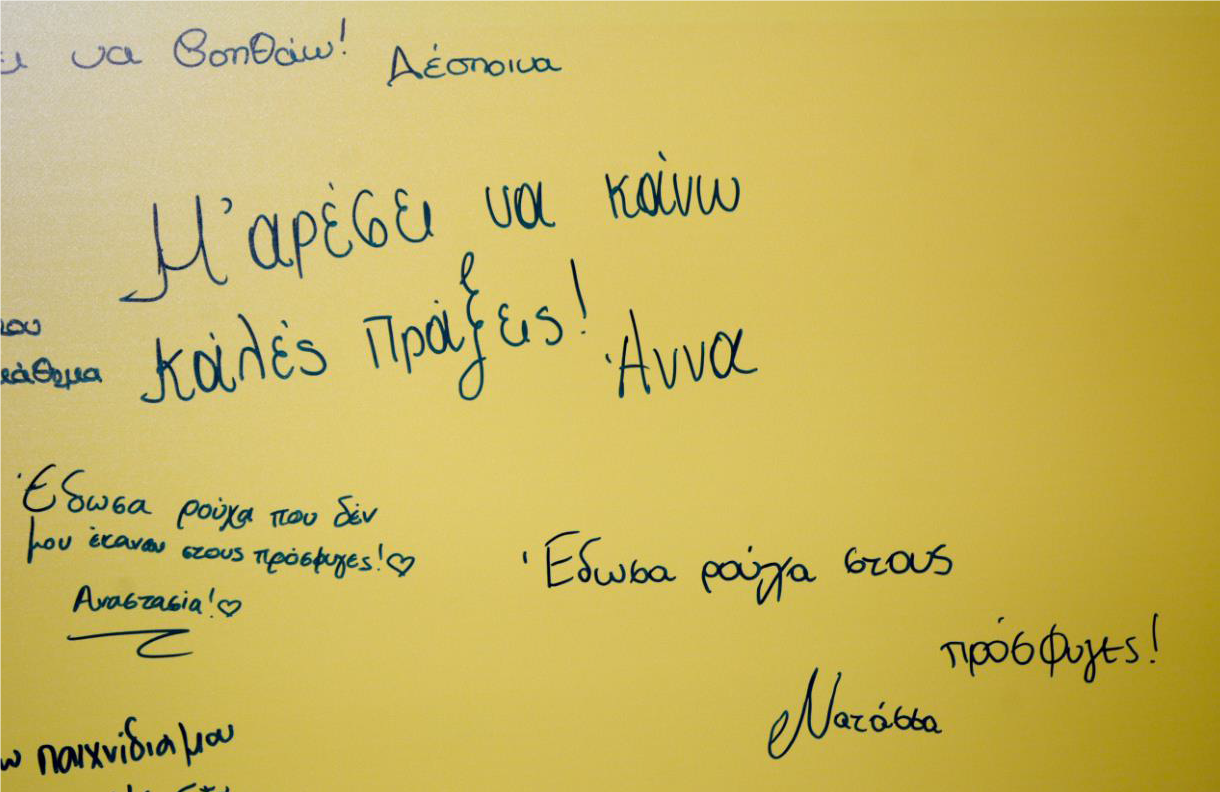 να βοηθάω! Δέσποινα
Μ'αρέσει να κάνω
κάλές πράξεις! Άννα
Έδωσα ρούχα που δέν
μου έκαναν στους πρόσφυγες! ♡
Αναστασία! ♡
Έδωσα ρούχα στους
πρόσφυγες!
Νατάσσα
παιχνίδια μου